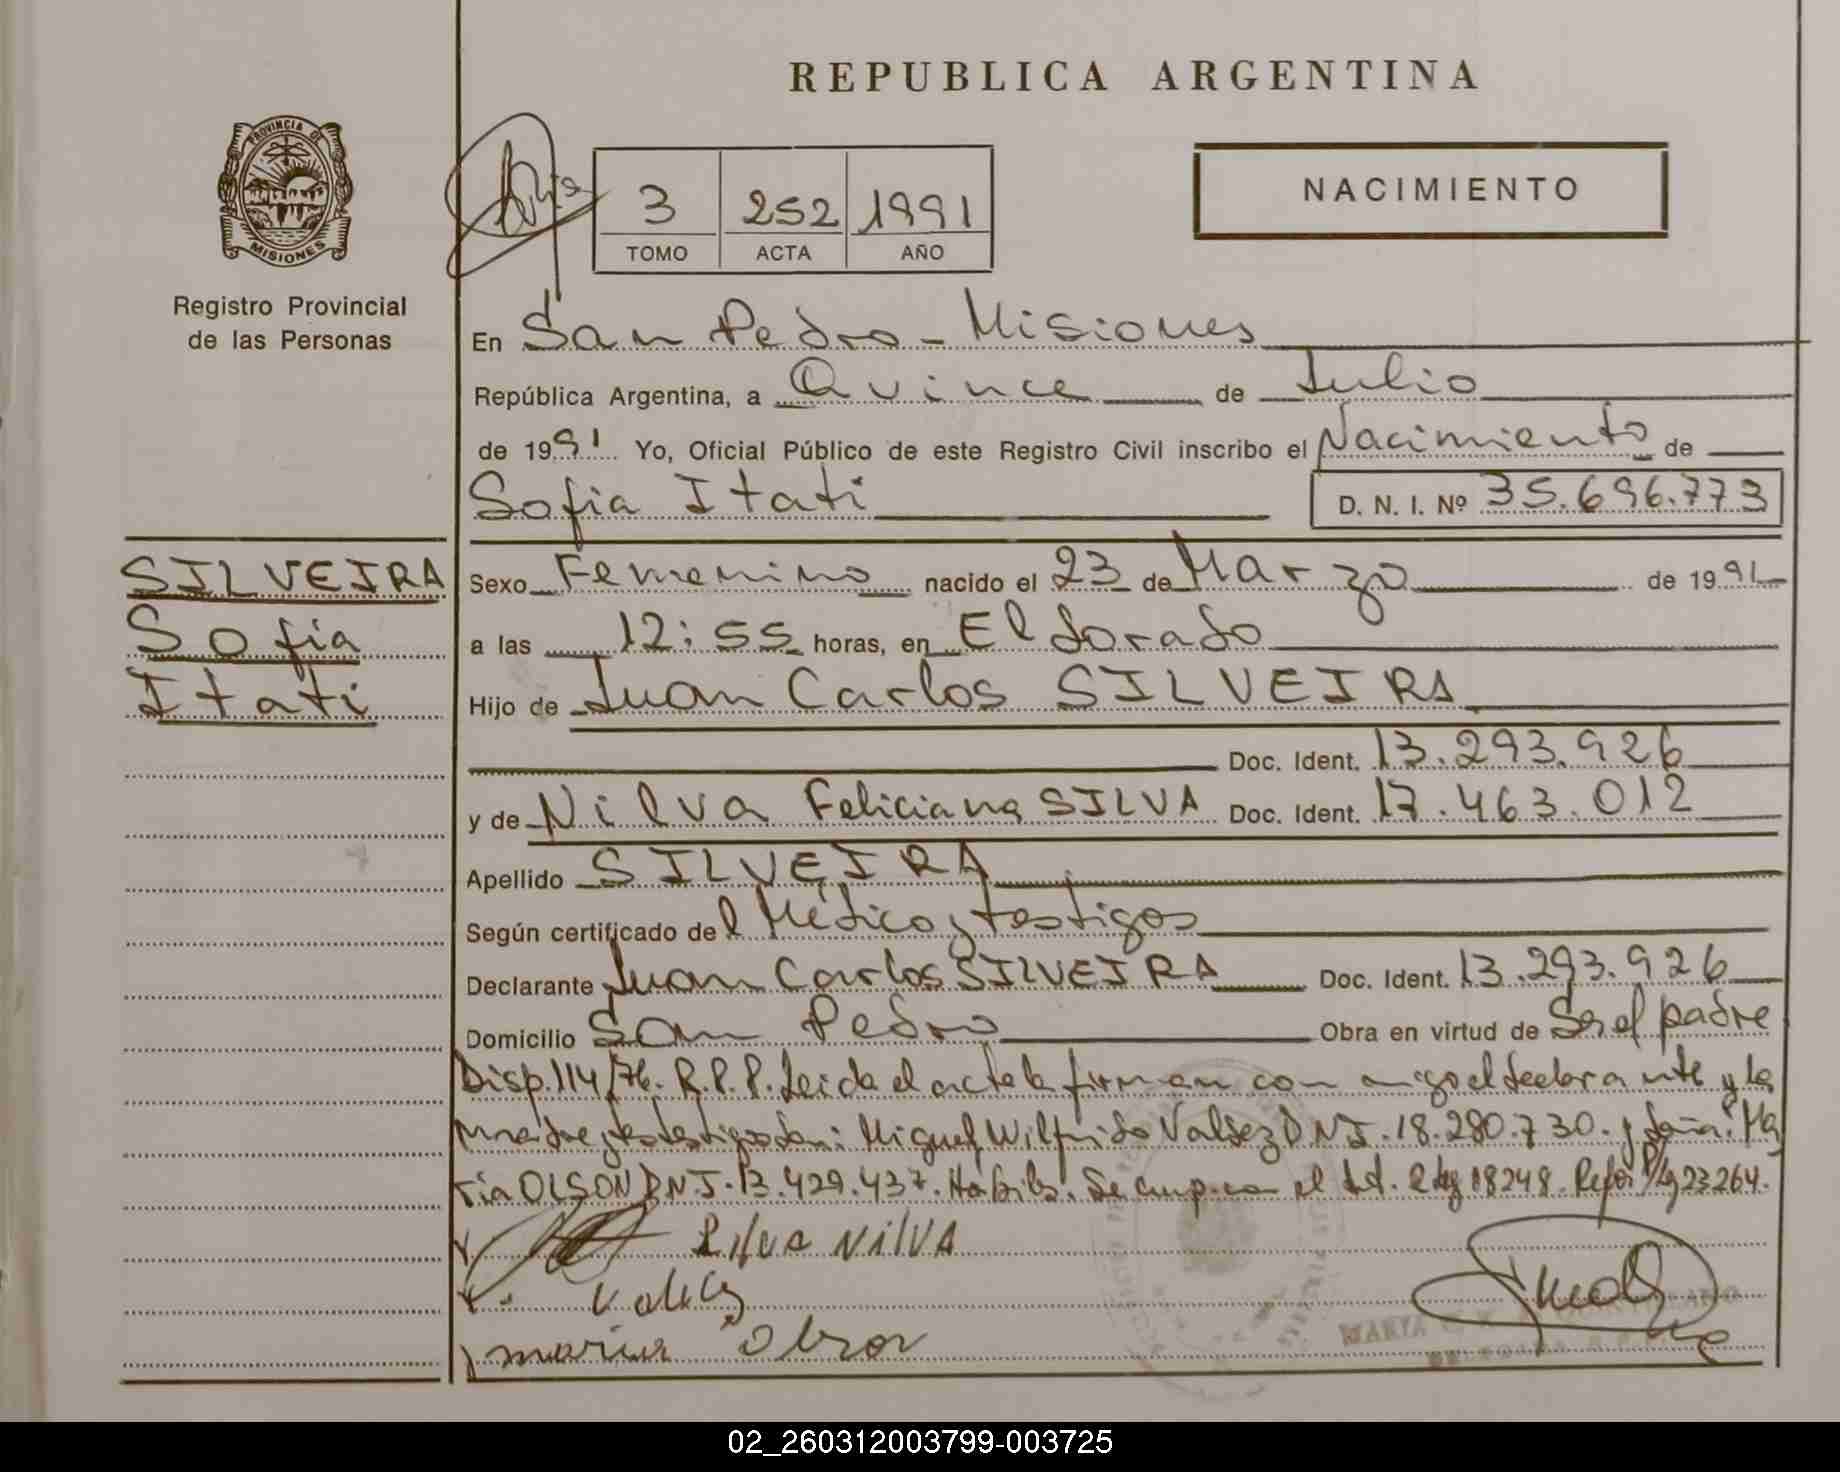 REPUBLICA ARGENTINA
PROVINCIA DE
MISIONES
Registro Provincial
de las Personas
3 252 1991
TOMO ACTA AÑO
NACIMIENTO
En San Pedro - Misiones
República Argentina, a Quince de Julio
de 1991 Yo, Oficial Público de este Registro Civil inscribo el Nacimiento de
Sofia Itati D. N. I. Nº 35.696.773
SILVEIRA
Sofia
Itati
Sexo Femenino nacido el 23 de Marzo de 1991
a las 12:55 horas, en Eldorado
Hijo de Juan Carlos SILVEIRA
Doc. Ident. 13.293.926
y de Nilva Feliciana SILVA Doc. Ident. 17.463.012
Apellido SILVEIRA
Según certificado del Médico y testigos
Declarante Juan Carlos SILVEIRA Doc. Ident. 13.293.926
Domicilio San Pedro Obra en virtud de Ser el padre
Disp. 114/76. R.P.P. Leida el acta la firman con migo el declarante y la
madre y los testigos don: Miguel Wilfrido Valdez DNI. 18.280.730. y doña: Ma
ria OLSON DNI. 13.429.437. Habiles. Se cump. con el Art. 2 ley 18248. Refor. P/ley 23264.
Silva Nilva
Valdez
maria Olson
MARIA
02_260312003799-003725